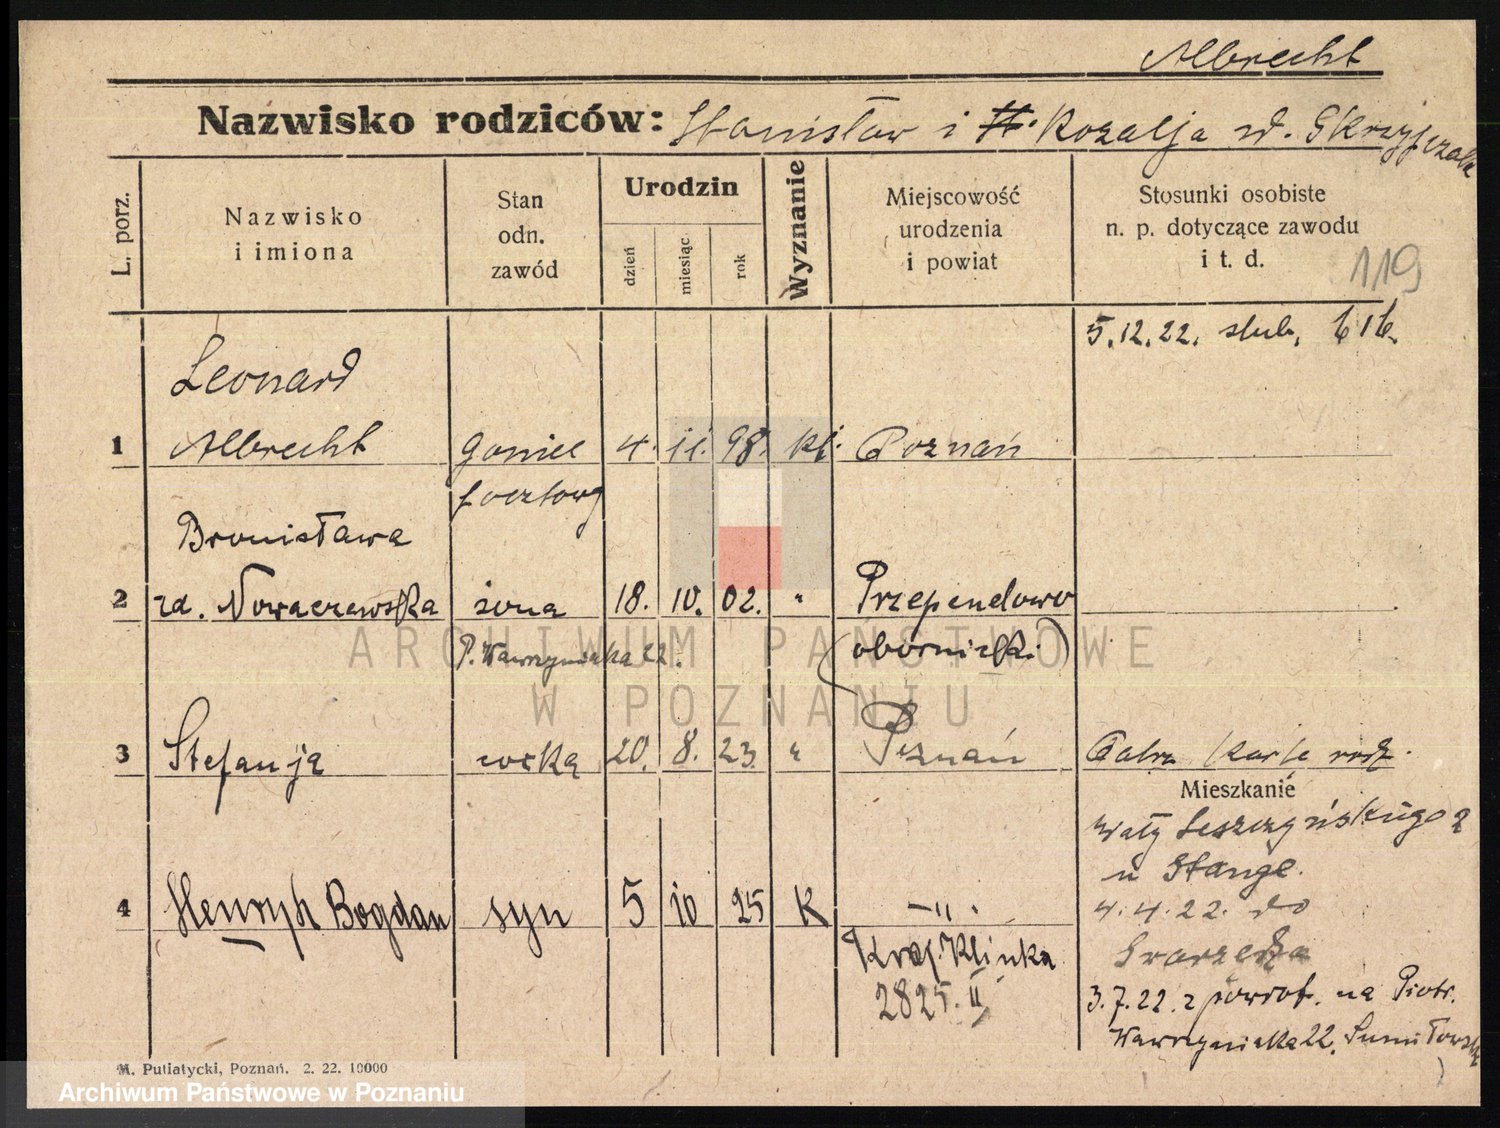 Albrecht
Nazwisko rodziców: Stanisław i Rozalja zd. Skrzypczak
L. porz.
Nazwisko
i imiona
Stan
odn.
zawód
Urodzin
dzień
miesiąc
rok
Wyznanie
Miejscowość
urodzenia
i powiat
Stosunki osobiste
n. p. dotyczące zawodu
i t. d.
119
5.12.22. slub.
Leonard
1 Albrecht goniec 4. 11. 98. kt. Poznań
pocztowy
Bronisława
2 zd. Nowaczewska żona 18. 10. 02. " Przependowo
P. Wawrzyniaka 22. (obornicki)
3 Stefanja córka 20. 8. 23. " Poznań
Mieszkanie
Wały Leszczyńskiego 2
u Stange.
4 Henryk Bogdan syn 5 10 25 K —"—.
4.4.22. do
Klinika
2825. II
3.7.22. z powrot. na Piotr.
Wawrzyniaka 22.
M. Putiatycki, Poznań. 2. 22. 10000
ARCHIWUM PAŃSTWOWE
W POZNANIU
Archiwum Państwowe w Poznaniu